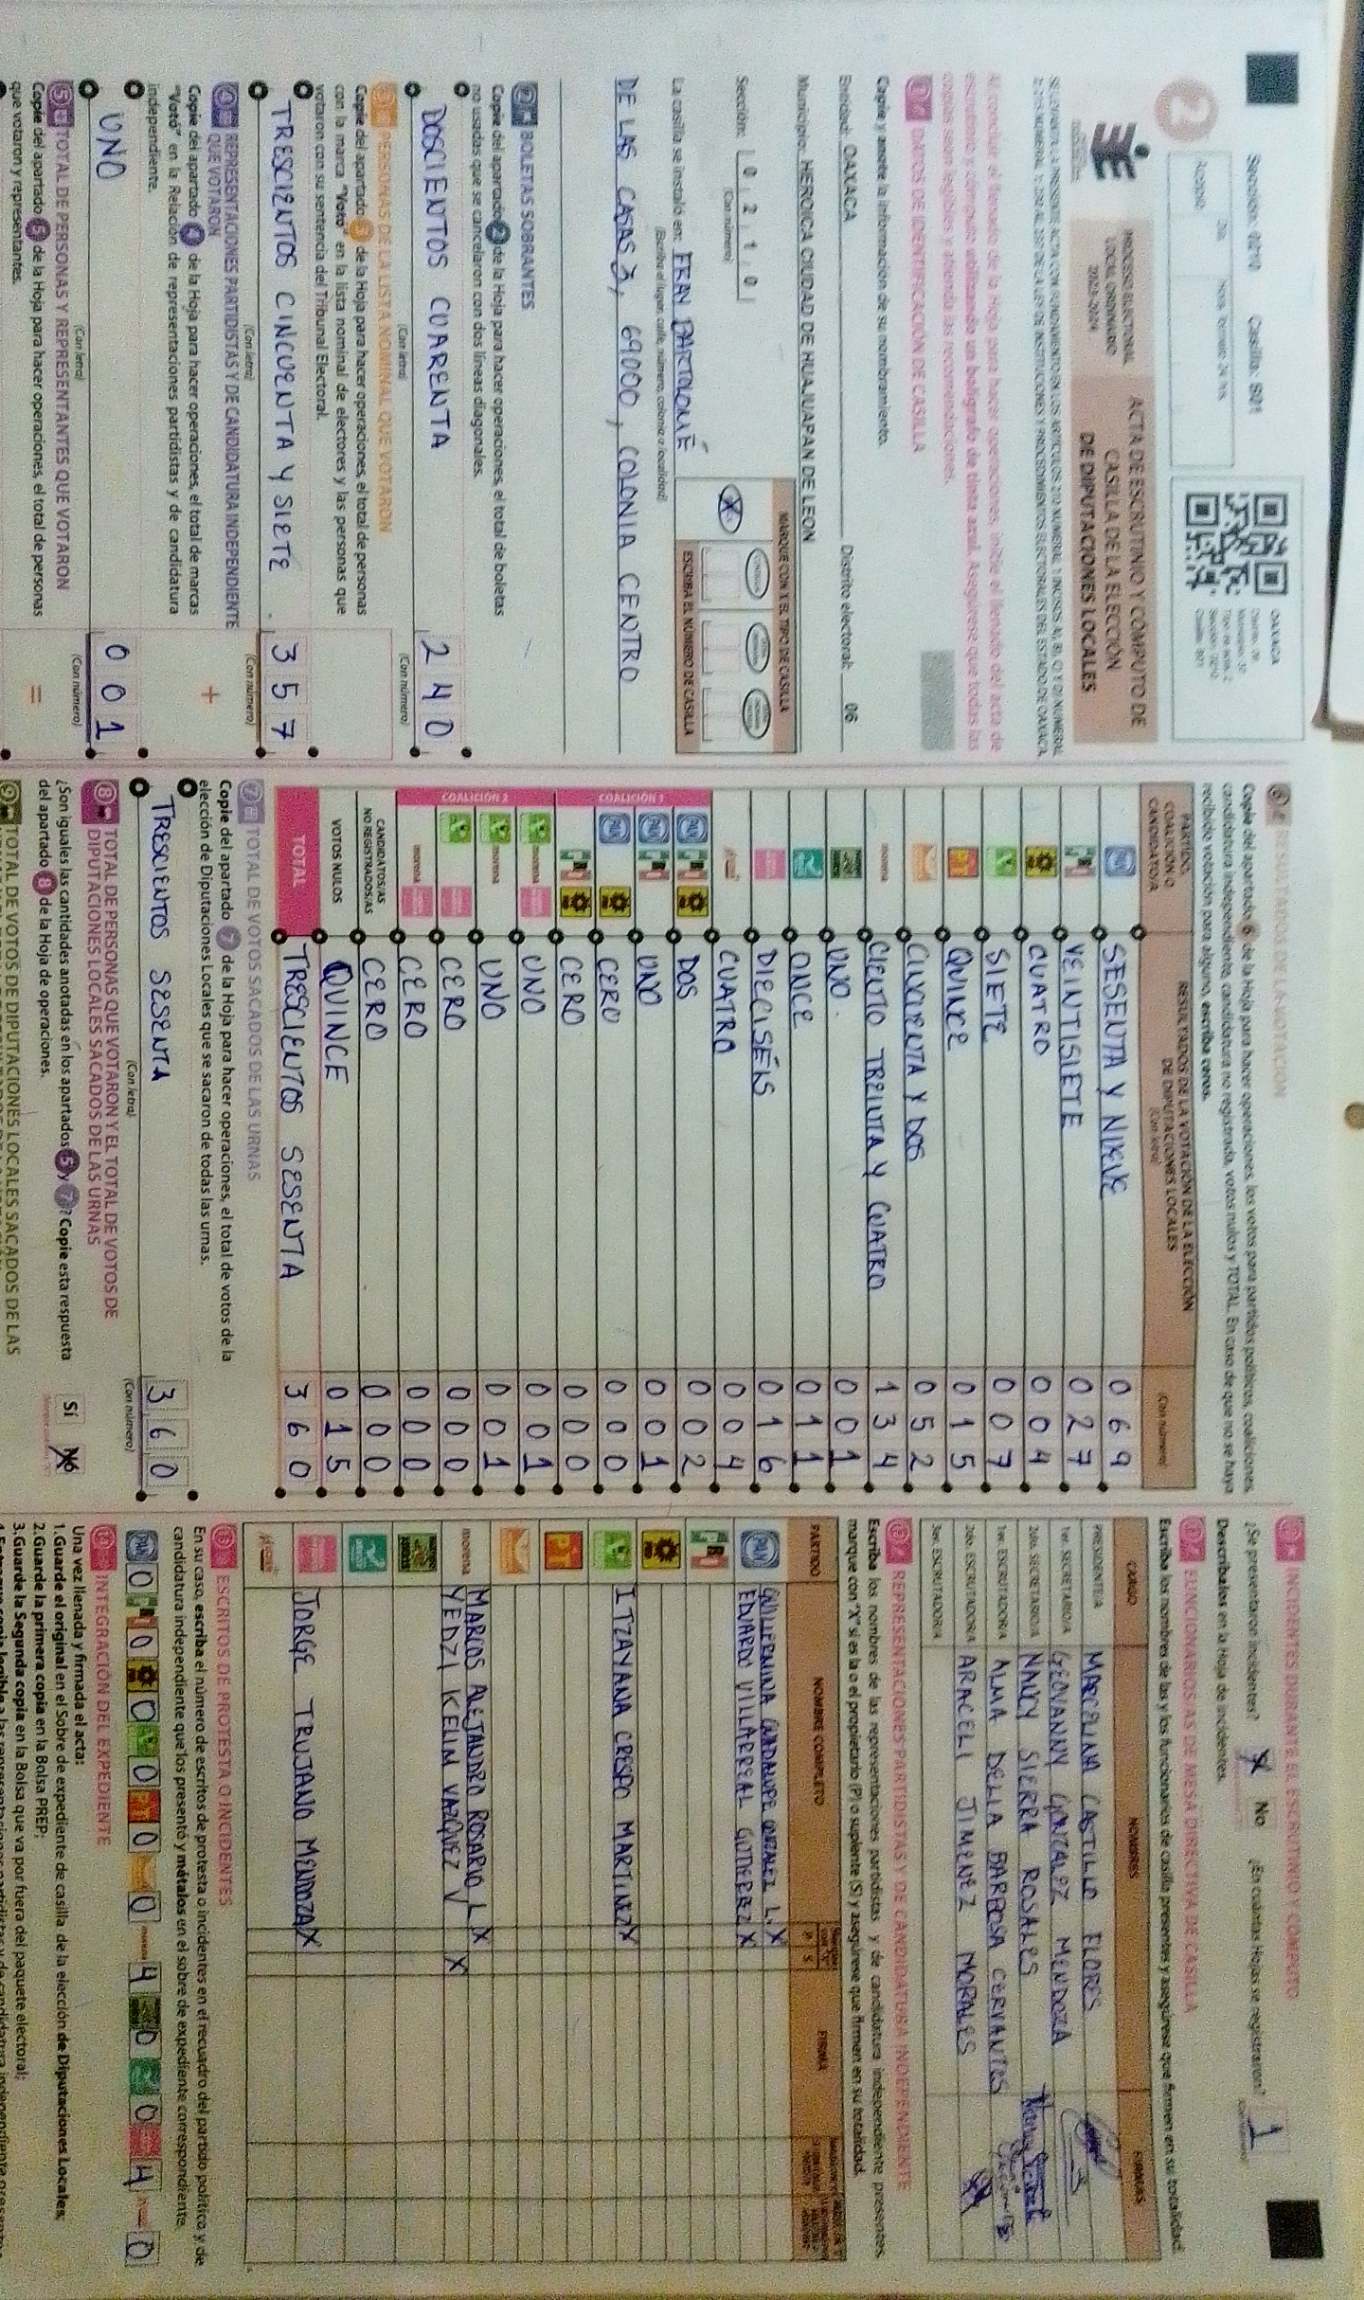 Sección: 0210 Casilla: S01
OAXACA
2
Acopio:
PROCESO ELECTORAL
LOCAL ORDINARIO
2023-2024
ACTA DE ESCRUTINIO Y CÓMPUTO DE
CASILLA DE LA ELECCIÓN
DE DIPUTACIONES LOCALES
Al concluir el llenado de la Hoja para hacer operaciones, inicie el llenado del acta de
escrutinio y cómputo utilizando un bolígrafo de tinta azul. Asegúrese que todas las
copias sean legibles y atienda las recomendaciones.
1 DATOS DE IDENTIFICACIÓN DE CASILLA
Copie y anote la información de su nombramiento.
Entidad: OAXACA Distrito electoral: 06
Municipio: HEROICA CIUDAD DE HUAJUAPAN DE LEON
Sección: 0 2 1 0
(Con número)
MARQUE CON X EL TIPO DE CASILLA
X
ESCRIBA EL NÚMERO DE CASILLA
La casilla se instaló en: FRAY BARTOLOMÉ
(Escriba el lugar, calle, número, colonia o localidad)
DE LAS CASAS 3, 69000, COLONIA CENTRO
2 BOLETAS SOBRANTES
Copie del apartado 2 de la Hoja para hacer operaciones, el total de boletas
no usadas que se cancelaron con dos líneas diagonales.
DOSCIENTOS CUARENTA 2 4 0
(Con letra) (Con número)
3 PERSONAS DE LA LISTA NOMINAL QUE VOTARON
Copie del apartado 3 de la Hoja para hacer operaciones, el total de personas
con la marca "Votó" en la lista nominal de electores y las personas que
votaron con su sentencia del Tribunal Electoral.
TRESCIENTOS CINCUENTA Y SIETE 3 5 7
(Con letra) (Con número)
4 REPRESENTACIONES PARTIDISTAS Y DE CANDIDATURA INDEPENDIENTE
QUE VOTARON +
Copie del apartado 4 de la Hoja para hacer operaciones, el total de marcas
"Votó" en la Relación de representaciones partidistas y de candidatura
independiente.
UNO 0 0 1
(Con letra) (Con número)
5 TOTAL DE PERSONAS Y REPRESENTANTES QUE VOTARON =
Copie del apartado 5 de la Hoja para hacer operaciones, el total de personas
que votaron y representantes.
6 RESULTADOS DE LA VOTACIÓN
Copie del apartado 6 de la Hoja para hacer operaciones, los votos para partidos políticos, coaliciones,
candidatura independiente, candidatura no registrada, votos nulos y TOTAL. En caso de que no se haya
recibido votación para alguno, escriba ceros.
PARTIDO,
COALICIÓN O
CANDIDATO/A
RESULTADOS DE LA VOTACIÓN DE LA ELECCIÓN
DE DIPUTACIONES LOCALES
(Con letra) (Con número)
PAN SESENTA Y NUEVE 0 6 9
PRI VEINTISIETE 0 2 7
PRD CUATRO 0 0 4
SIETE 0 0 7
PT QUINCE 0 1 5
CINCUENTA Y DOS 0 5 2
morena CIENTO TREINTA Y CUATRO 1 3 4
UNO 0 0 1
ONCE 0 1 1
DIECISÉIS 0 1 6
CUATRO 0 0 4
COALICIÓN 1
PAN PRI PRD DOS 0 0 2
PAN PRI UNO 0 0 1
PAN PRD CERO 0 0 0
PRI PRD CERO 0 0 0
COALICIÓN 2
morena UNO 0 0 1
morena UNO 0 0 1
CERO 0 0 0
morena CERO 0 0 0
CANDIDATOS/AS
NO REGISTRADOS/AS CERO 0 0 0
VOTOS NULOS QUINCE 0 1 5
TOTAL TRESCIENTOS SESENTA 3 6 0
7 TOTAL DE VOTOS SACADOS DE LAS URNAS
Copie del apartado 7 de la Hoja para hacer operaciones, el total de votos de la
elección de Diputaciones Locales que se sacaron de todas las urnas.
TRESCIENTOS SESENTA 3 6 0
(Con letra) (Con número)
8 TOTAL DE PERSONAS QUE VOTARON Y EL TOTAL DE VOTOS DE
DIPUTACIONES LOCALES SACADOS DE LAS URNAS
¿Son iguales las cantidades anotadas en los apartados 5 y 7? Copie esta respuesta Sí No
del apartado 8 de la Hoja de operaciones.
9 TOTAL DE VOTOS DE DIPUTACIONES LOCALES SACADOS DE LAS
INCIDENTES DURANTE EL ESCRUTINIO Y CÓMPUTO
¿Se presentaron incidentes? No ¿En cuántas Hojas se registraron? 1
Descríbalos en la Hoja de incidentes.
FUNCIONARIOS/AS DE MESA DIRECTIVA DE CASILLA
Escriba los nombres de las y los funcionarios de casilla presentes y asegúrese que firmen en su totalidad.
CARGO NOMBRES FIRMAS
PRESIDENTE/A MARCELINA CASTILLO FLORES
1er. SECRETARIO/A GEOVANNY GONZALEZ MENDOZA
2do. SECRETARIO/A NANCY SIERRA ROSALES
1er. ESCRUTADOR/A ALMA DELIA BARBOSA CERVANTES
2do. ESCRUTADOR/A ARACELI JIMENEZ MORALES
3er. ESCRUTADOR/A
REPRESENTACIONES PARTIDISTAS Y DE CANDIDATURA INDEPENDIENTE
Escriba los nombres de las representaciones partidistas y de candidatura independiente presentes,
marque con "X" si es la o el propietario (P) o suplente (S) y asegúrese que firmen en su totalidad.
PARTIDO NOMBRE COMPLETO P S FIRMA
PAN GUILLERMINA GUADALUPE GONZALEZ L. X
EDUARDO VILLARREAL GUTIERREZ X
PRI
PRD
ITZAYANA CRESPO MARTINEZ X
PT
morena MARCOS ALEJANDRO ROSARIO L X
YEDZI KELIM VAZQUEZ V X
JORGE TRUJANO MENDOZA X
ESCRITOS DE PROTESTA O INCIDENTES
En su caso, escriba el número de escritos de protesta o incidentes en el recuadro del partido político y de
candidatura independiente que los presentó y métalos en el sobre de expediente correspondiente.
PAN 0 PRI 0 PRD 0 0 PT 0 0 morena 4 0 0 4 0
INTEGRACIÓN DEL EXPEDIENTE
Una vez llenada y firmada el acta:
1.Guarde el original en el Sobre de expediente de casilla de la elección de Diputaciones Locales;
2.Guarde la primera copia en la Bolsa PREP;
3.Guarde la Segunda copia en la Bolsa que va por fuera del paquete electoral;